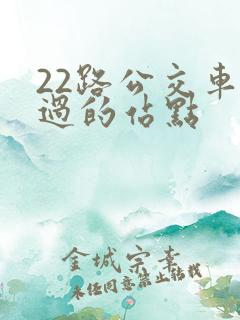 22路公交車
過的佔點
金城宗素
未经同意禁止转载